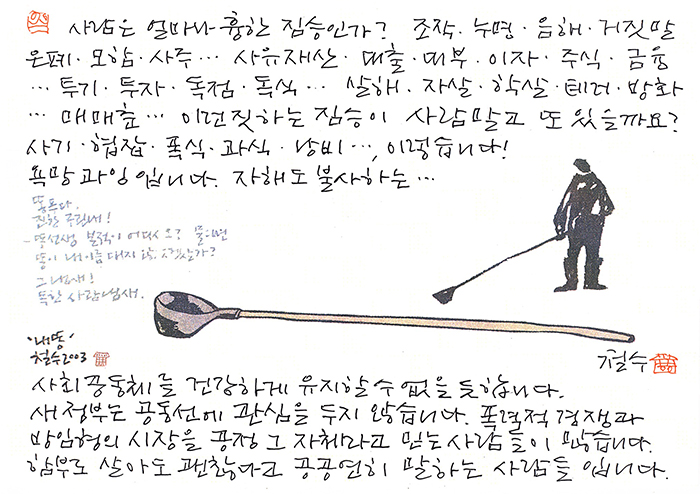 사람은 얼마나 흉한 짐승인가? 조작·누명·음해·거짓말
은폐·모함·사주… 사유재산·대출·대부·이자·주식·금융
…투기·투자·독점·독식… 살해·자살·학살·테러·방화
…매매춘… 이런짓하는 짐승이 사람말고 또 있을까요?
사기·협잡·폭식·과식·낭비…, 이렇습니다!
욕망 과잉입니다. 자해도 불사하는…
똥푸다.
진한 구린내!
-똥선생 본적이 어디시오? 물으면
똥이 네이름 대지 않겠는가?
그 냄새!
독한 사람냄새.
'내똥'
철수2003
철수
사회공동체를 건강하게 유지할 수 없을 듯합니다.
새정부는 공동선에 관심을 두지 않습니다. 폭력적 경쟁과
방임형의 시장을 공정 그 자체라고 믿는 사람들이 많습니다.
함부로 살아도 괜찮다고 공공연히 말하는 사람들입니다.